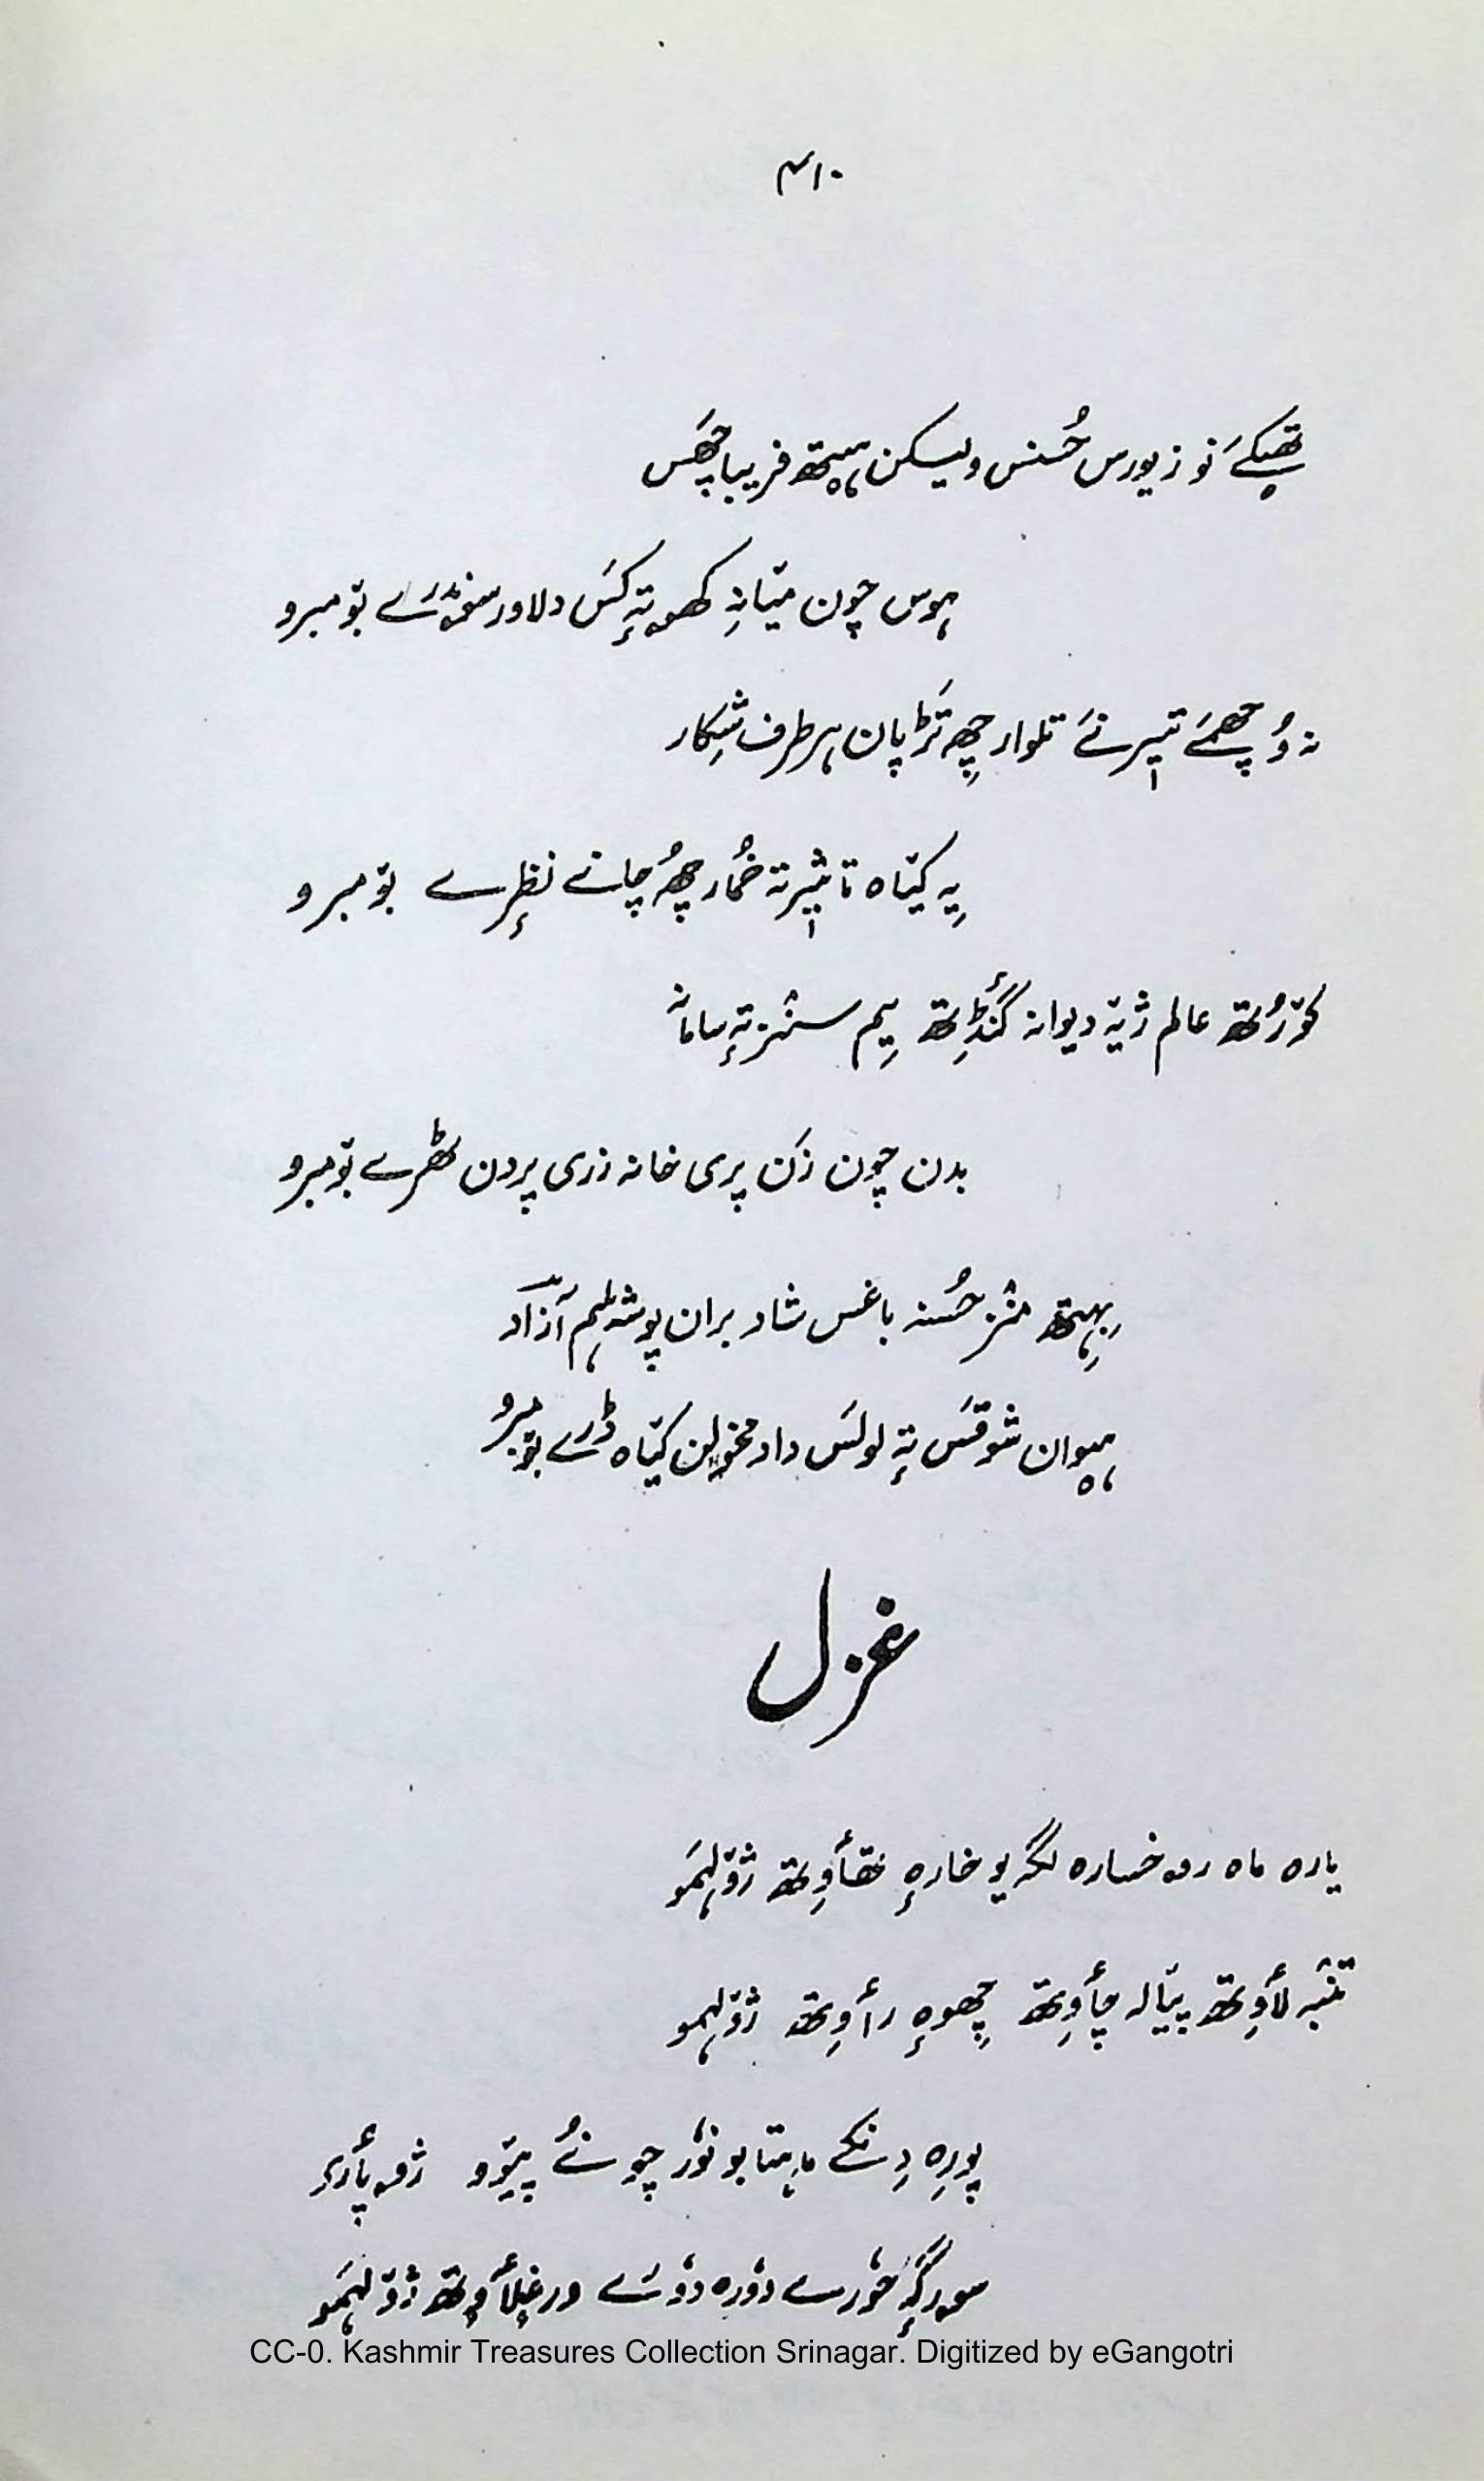 ۴۱۰
تھپکےَ نو زیورس حُسنس ولیکن ہیتھ فریبا چھَس
ہوس چون میٚانہِ کھوتہٕ کَس دلاور سٔندرَے بۆمبرو
نہ وُچھمےَ تیٖر نےَ تلوار چھِ تڑَپان ہر طرف شِکار
یِہ کیٚاہ تاثیٖر تہ خُمار چھُہ چانے نظرٕے بۆمبرو
کۆرُتھ عالم ژیۃ دیوانہ گنٔڈِتھ یِم سنٛز تہٕ سامانہ
بدن چون زَن پری خانہ زری پردن ٹھرے بۆمبرو
بِہِتھ منٛز حُسنہ باغس شاد بران پوشہ ہلم آزاد
ہیوان شوقَس تہٕ لولَس داد کیٚاہ ڈرے بۆمبرو
غزل
یارہ ماہ رو خسارہ لگہ یو خارہٕ تھٲوِتھ ژۆلہَمو
تنبہ لٲوِتھ پیٚالہ چٲوِتھ چھِوہٕ رٲوِتھ ژۆلہمو
پورِہ دِنکے مہتابو نوٗر چونُے پیوٚو ژوپٲرۍ
سورگہٕ حوٗرے دوٗرہ دوٗرے ورغلٲوِتھ ژۆلہَمو
CC-0. Kashmir Treasures Collection Srinagar. Digitized by eGangotri